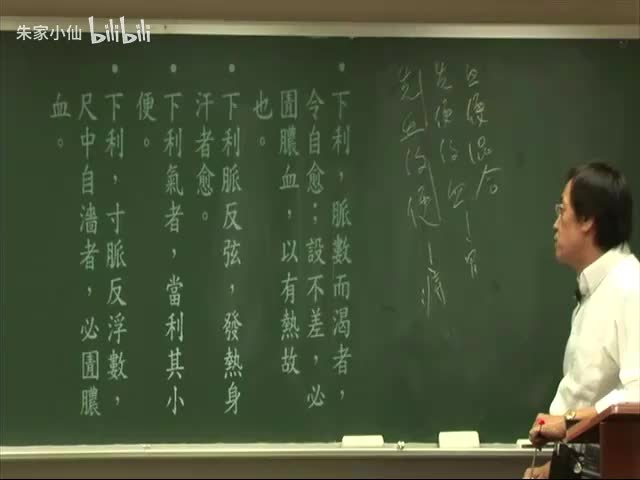 朱家小仙 bilibili
便混合
先便後血—胃
先血後便—痔
• 下利，脈數而渴者，
令自愈；設不差，必
圊膿血，以有熱故
也。
• 下利脈反弦，發熱身
汗者愈。
• 下利氣者，當利其小
便。
• 下利，寸脈反浮數，
尺中自濇者，必圊膿
血。